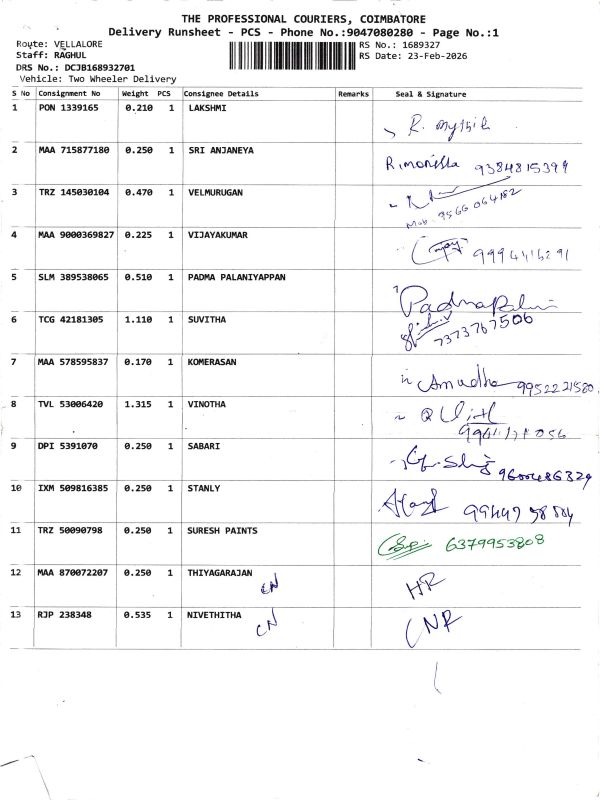 THE PROFESSIONAL COURIERS, COIMBATORE
Delivery Runsheet - PCS - Phone No.:9047080280 - Page No.:1
Route: VELLALORE
RS No.: 1689327
Staff: RAGHUL
RS Date: 23-Feb-2026
DRS No.: DCJB168932701
Vehicle: Two Wheeler Delivery
S No Consignment No Weight PCS Consignee Details Remarks Seal & Signature
1 PON 1339165 0.210 1 LAKSHMI
R. mythili
2 MAA 715877180 0.250 1 SRI ANJANEYA
R.monisha 9384815399
3 TRZ 145030104 0.470 1 VELMURUGAN
Mob. 9566064182
4 MAA 9000369827 0.225 1 VIJAYAKUMAR
5 SLM 389538065 0.510 1 PADMA PALANIYAPPAN
Padma
6 TCG 42181305 1.110 1 SUVITHA
7373767506
7 MAA 578595837 0.170 1 KOMERASAN
Anudha 9952221580
8 TVL 53006420 1.315 1 VINOTHA
9 DPI 5391070 0.250 1 SABARI
9600486329
10 IXM 509816385 0.250 1 STANLY
11 TRZ 50090798 0.250 1 SURESH PAINTS
6379953808
12 MAA 870072207 0.250 1 THIYAGARAJAN
CN HR
13 RJP 238348 0.535 1 NIVETHITHA
CN NR